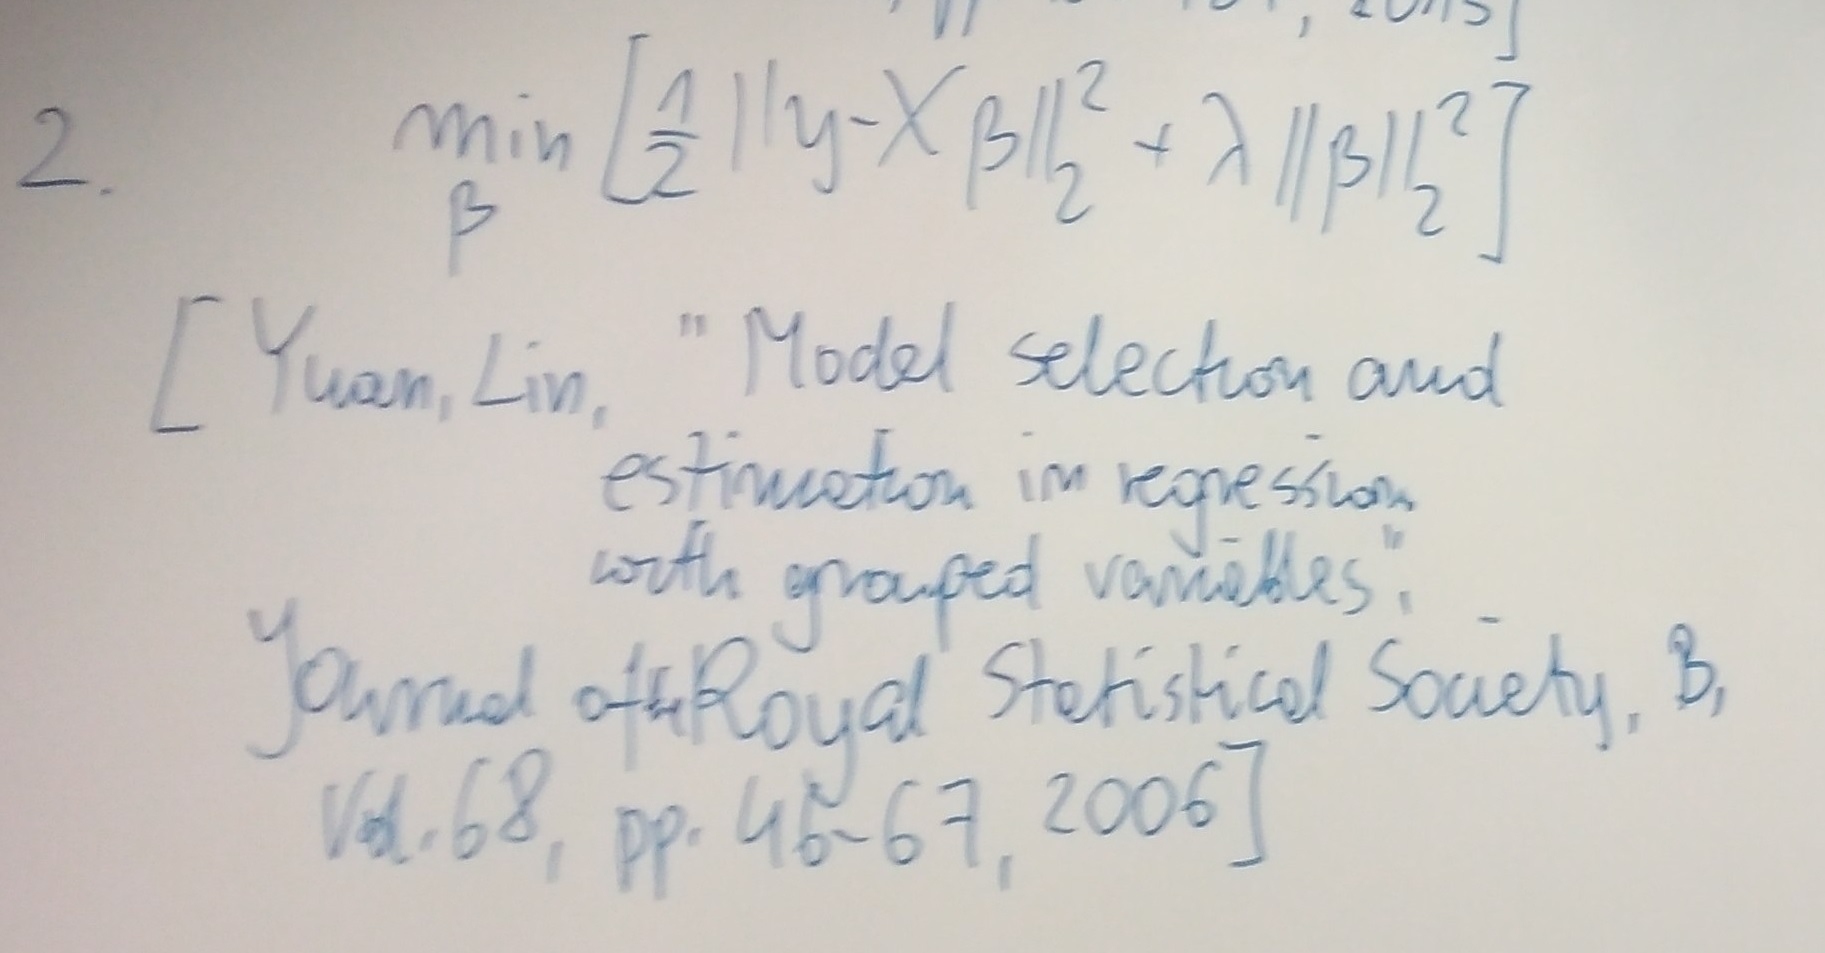 , 2015]
2. min [1/2 ||y-Xβ||₂² + λ||β||₂²]
β
[Yuan, Lin, "Model selection and
estimation in regression
with grouped variables".
Journal of the Royal Statistical Society, B,
Vol. 68, pp. 46-67, 2006]